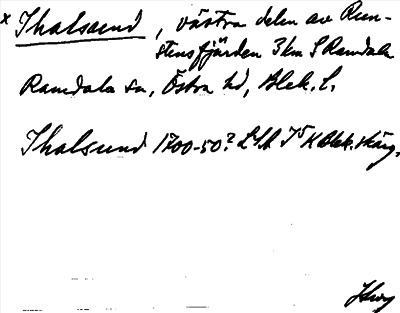 x Thalsund, västra delen av Run-
stensfjärden 3 km S Ramdala
Ramdala sn, Östra hd, Blek. l.
Thalsund 1700-50? LSA I5 K Blek. skärg.